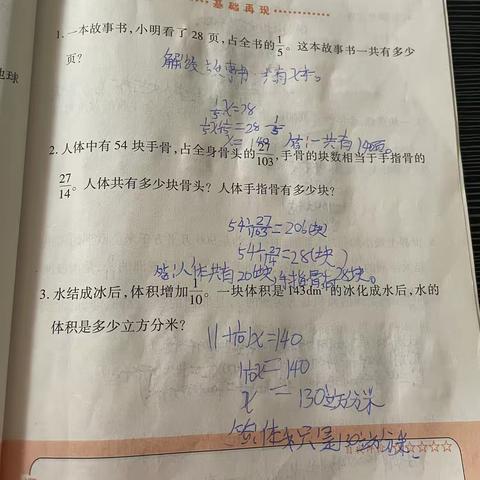 基础再现
1. 一本故事书,小明看了 28 页,占全书的1/5。这本故事书一共有多少
页?
解设故事书一共有x本。
1/5x=28
1/5x÷1/5=28÷1/5
x=140 答:一共有140页。
2. 人体中有 54 块手骨,占全身骨头的27/103,手骨的块数相当于手指骨的
27/14。人体共有多少块骨头?人体手指骨有多少块?
54÷27/103=206(块)
54÷27/14=28(块)
答:人体共有206块,手指骨有28块。
3. 水结成冰后,体积增加1/10。一块体积是 143dm³的冰化成水后,水的
体积是多少立方分米?
(1+1/10)x=140
x = 130立方分米
地球